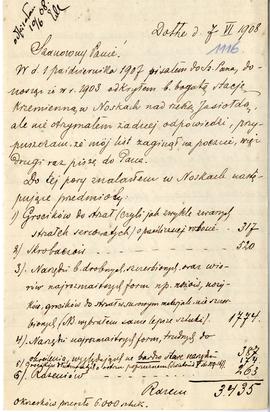 odpisałem
10/6 08
Dołhe d. 7 VI 1908.
1116
Szanowny Panie.
W d. 1 października 1907 pisałem do Sz. Pana, do-
nosząc że w r. 1903 odkryłem b. bogatą stację
krzemienną w Noskach nad rzeką Jasiołdą,
ale nie otrzymałem żadnej odpowiedzi, przy-
puszczam, że mój list zaginął na poczcie, więc
drugi raz piszę do Pana.
Do tej pory znalazłem w Noskach nastę-
pujące przedmioty:
1) Grocików do strzał (czyli jak zwykle zwanych
strzałek sercowatych) opaślejszej roboty 317
2) Skrobaczów 520
3) Narzędzi b. drobnych, szczerbionych, oraz wió-
rów najrozmaitszych form n.p. nożów, noży-
ków, grocików do strzał w surowym materjale nie szczer-
bionych (NB wybrałem same lepsze sztuki) 1774
4) Narzędzi najrozmaitszych form, trudnych do
określenia, wyglądających na bardzo stare narzędzi 387
5) 174
6) Rdzeniów 263
Razem 3435
okrzesków przeszło 6.000 sztuk.